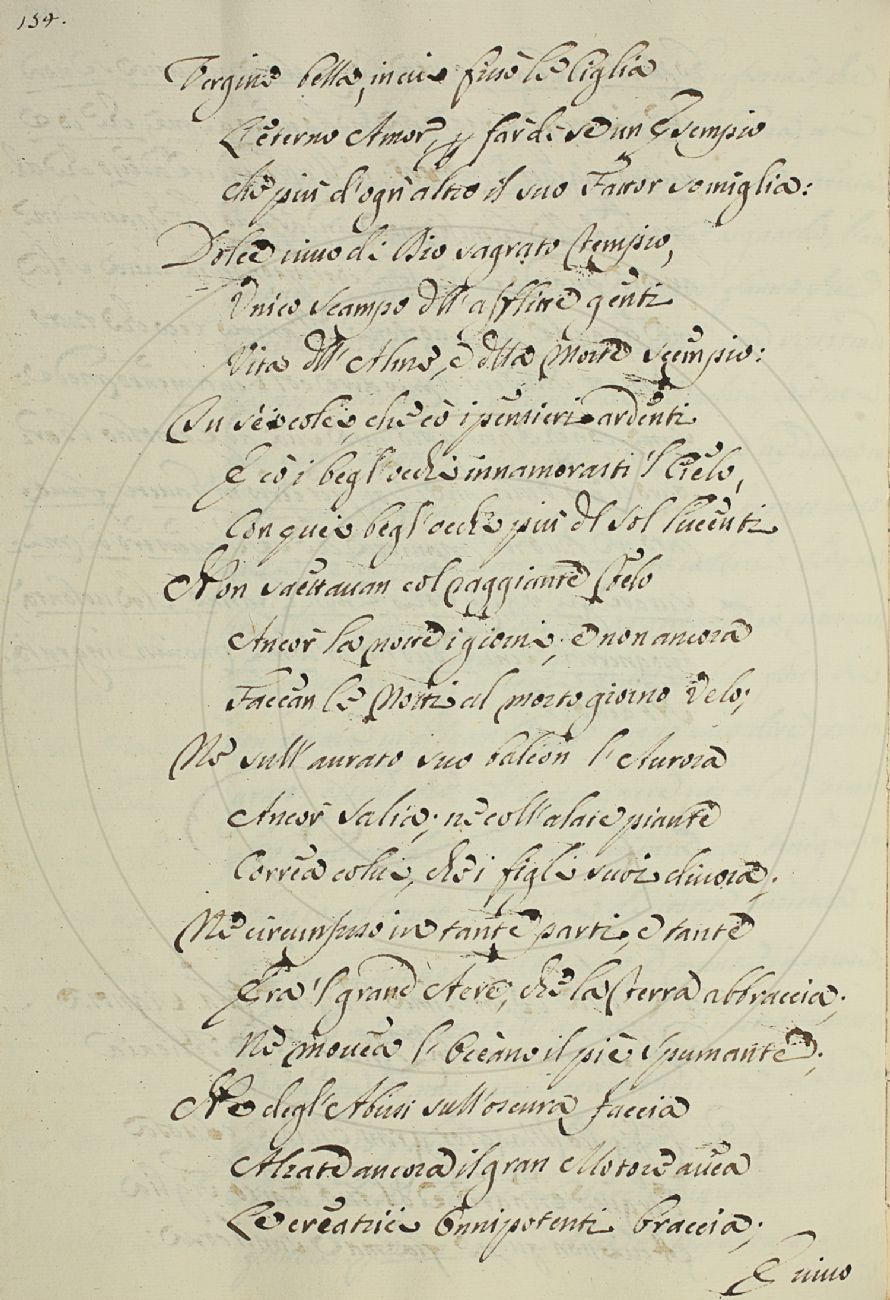 134.
Vergine bella, in cui fissò le Ciglia
L'eterno Amor, p far di se un Esempio
che più d'ogn'altro il suo Fattor somiglia:
Dolce, vivo di Dio sagrato Tempio,
Unico scampo dll'afflitte genti
Vita dll'Alme, e dlla Morte scempio:
Tu sei colei, che cō i pensieri ardenti
E cō i begl'occhi innamorasti 'l Cielo,
Con quei begl'occhi più dl Sol lucenti
Non saettavan col raggiante Telo
Ancor la notte i giorni; e non ancora
Faccan le Notti al morto giorno velo;
Ne sull'aurato suo balcon l'Aurora
Ancor salia; ne coll'alate piante
Correa colui, che i figli suoi divora;
Ne circunfuso in tante parti, e tante
Era 'l grand Aere, che la Terra abbraccia;
Ne movea l'Oceano il piè spumante;
Ne degl'Abissi sull'oscura faccia
Alzate ancora il gran Motore avea
Le creatrici Onnipotenti braccia;
E vivo